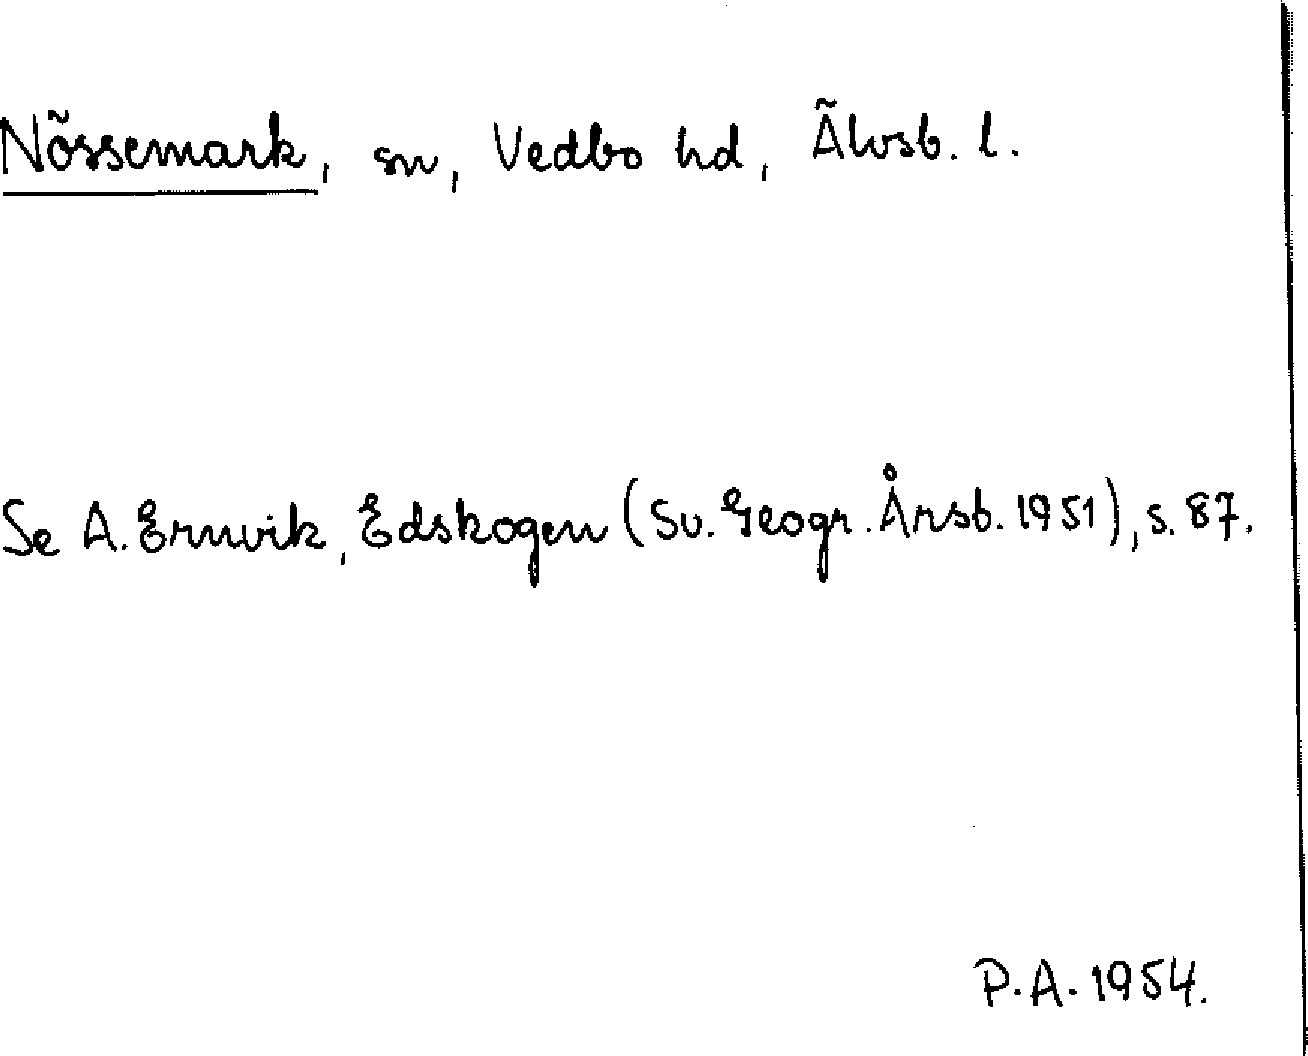 Nössemark, sn, Vedbo hd, Älvsb. l.
Se A. Ernvik, Edskogen (Sv. Geogr. Årsb. 1951), s. 87.
P.A. 1954.